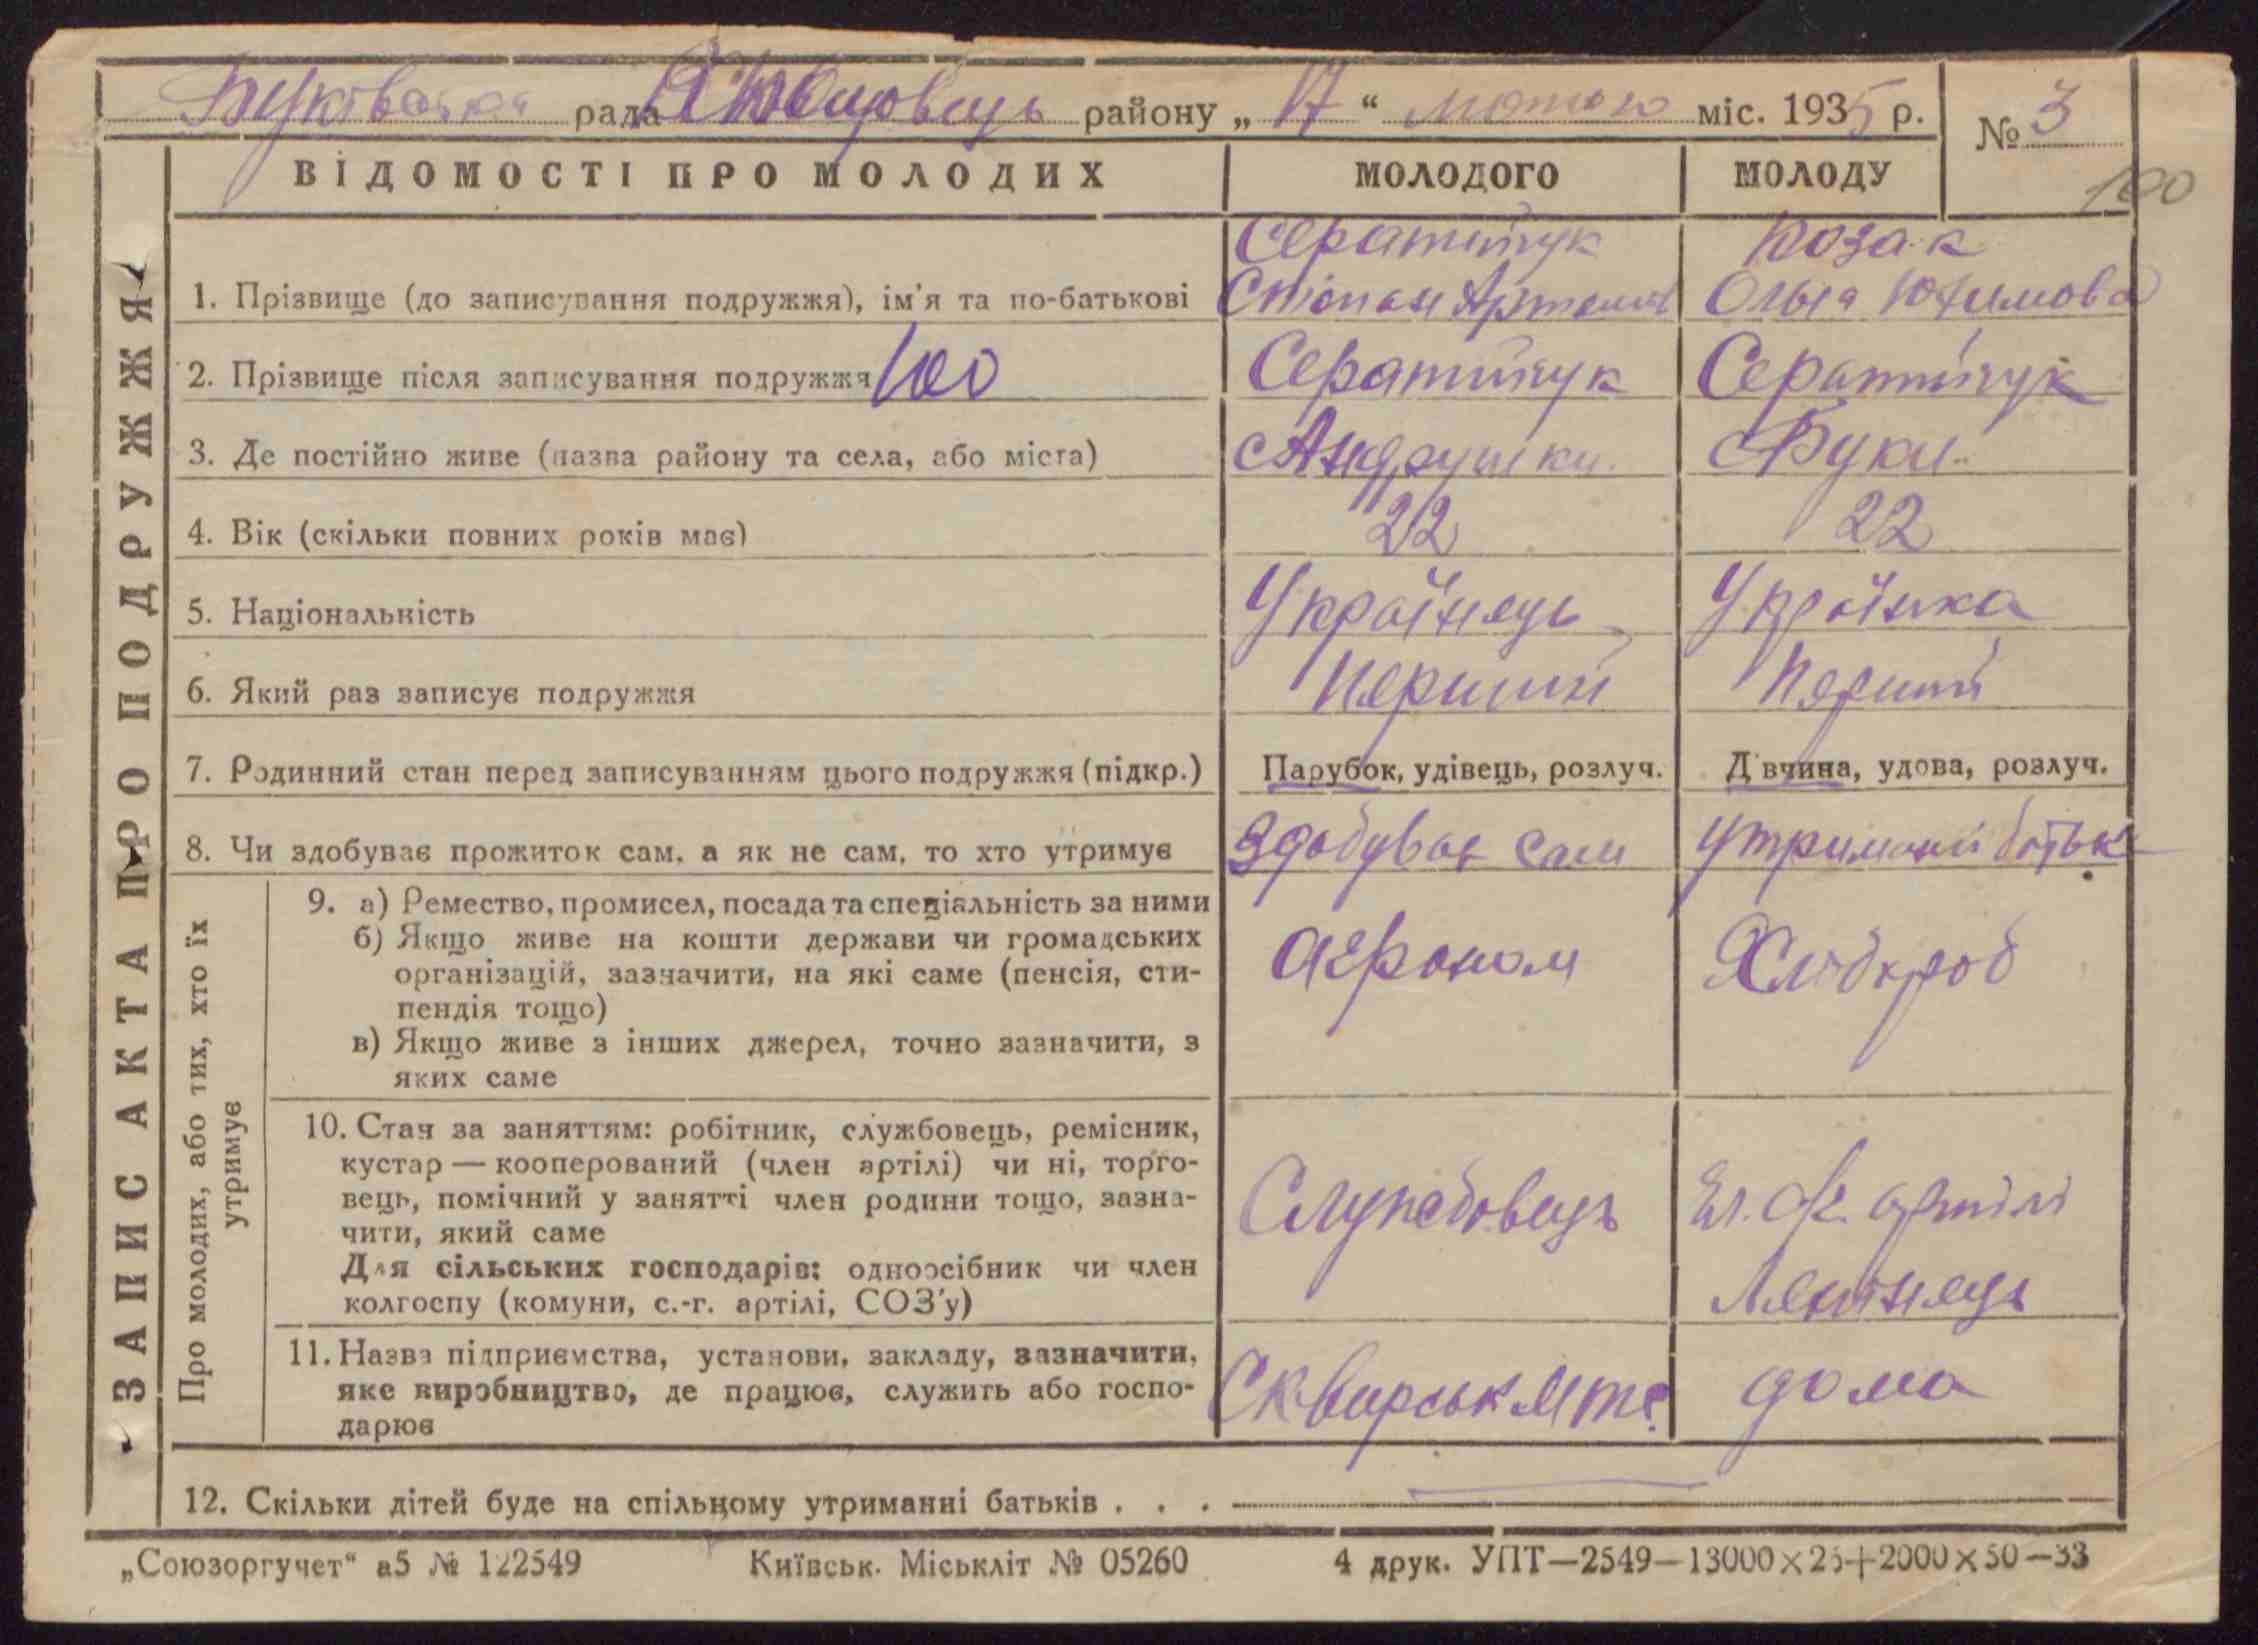 рада району „ 17 “ міс. 1935 р. № 3
100
ВІДОМОСТІ ПРО МОЛОДИХ МОЛОДОГО МОЛОДУ
ЗАПИС АКТА ПРО ПОДРУЖЖЯ
Козак
1. Прізвище (до записування подружжя), ім'я та по-батькові Ольга Юхимова
2. Прізвище після записування подружжя 100
3. Де постійно живе (назва району та села, або міста) с Андрушки. с Буки
4. Вік (скільки повних років має) 22 22
5. Національність Українець Українка
6. Який раз записує подружжя Перший Перший
7. Родинний стан перед записуванням цього подружжя (підкр.) Парубок, удівець, розлуч. Дівчина, удова, розлуч.
8. Чи здобуває прожиток сам, а як не сам, то хто утримує Здобуває сам
Про молодих, або тих, хто їх
утримує
9. а) Ремество, промисел, посада та спеціальність за ними
б) Якщо живе на кошти держави чи громадських
організацій, зазначити, на які саме (пенсія, сти-
пендія тощо)
в) Якщо живе з інших джерел, точно зазначити, з
яких саме
агроном Хлібороб
10. Стан за заняттям: робітник, службовець, ремісник,
кустар — кооперований (член артілі) чи ні, торго-
вець, помічний у занятті член родини тощо, зазна-
чити, який саме
Для сільських господарів: одноосібник чи член
колгоспу (комуни, с.-г. артілі, СОЗ'у)
Службовець артілі
11. Назва підприємства, установи, закладу, зазначити,
яке виробництво, де працює, служить або госпо-
дарює
Сквирськ мтс. дома
12. Скільки дітей буде на спільному утриманні батьків . . .
„Союзоргучет“ а5 № 122549 Київськ. Міськліт № 05260 4 друк. УПТ—2549—13000×25+2000×50—33